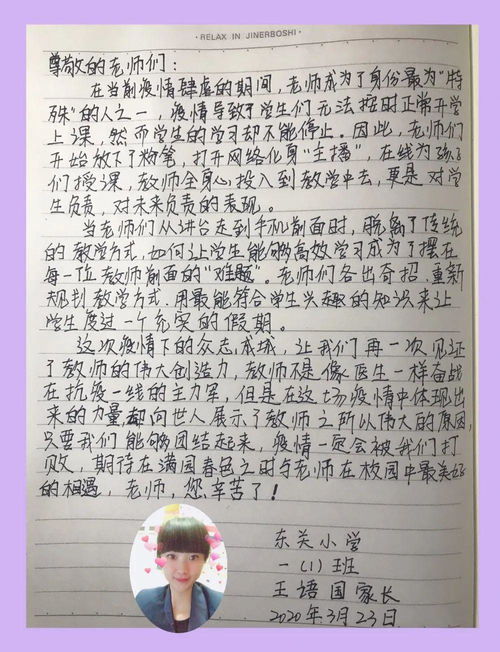 · RELAX IN JINERBOSHI ·
尊敬的老师们：
在当前疫情肆虐的期间，老师成为了身份最为“特
殊”的人之一，疫情导致了学生们无法按时正常开学
上课，然而学生的学习却不能停止。因此，老师们
开始放下了粉笔，打开网络化身“主播”，在线为孩子
们授课，教师全身心投入到教学中去，更是对学
生负责，对未来负责的表现。
当老师们从讲台走到手机前面时，脱离了传统
的教学方式，如何让学生能够高效学习成为了摆在
每一位教师前面的“难题”。老师们各出奇招，重新
规划教学方式，用最能符合学生兴趣的知识来让
学生度过一个充实的假期。
这次疫情下的众志成城，让我们再一次见证
了教师的伟大创造力，教师不是像医生一样奋战
在抗疫一线的主力军，但是在这场疫情中体现出
来的力量却向世人展示了教师之所以伟大的原因，
只要我们能够团结起来，疫情一定会被我们打
败，期待在满园春色之时与老师在校园中最美好
的相遇，老师，您辛苦了！
东关小学
一（1）班
王语国家长
2020年3月23日